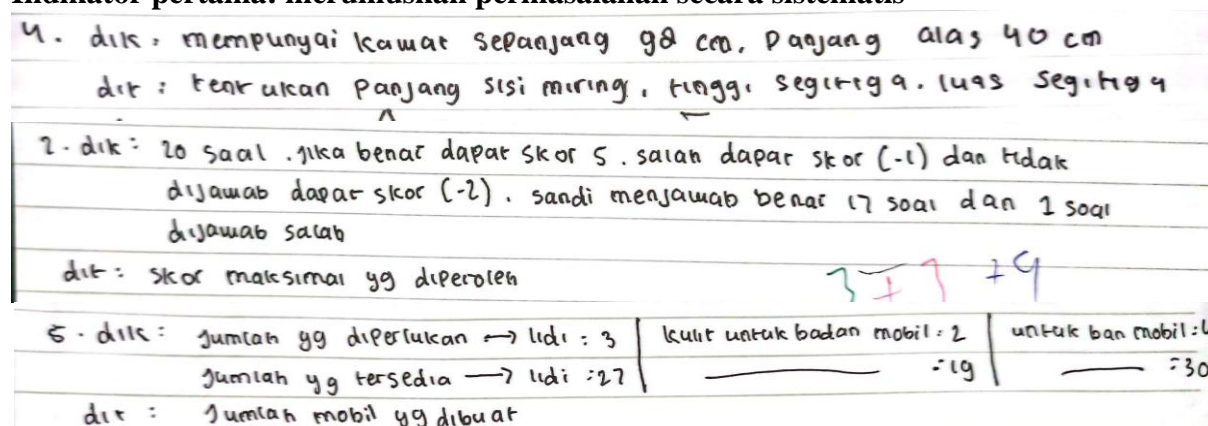 Indikator pertama: merumuskan permasalahan secara sistematis
4. dik, mempunyai kawat sepanjang 98 cm, Panjang alas 40 cm
dit : tentukan panjang sisi miring, tinggi segitiga. luas segitiga
2. dik: 20 soal. jika benar dapat skor 5. salah dapat skor (-1) dan tidak
dijawab dapat skor (-2). sandi menjawab benar 17 soal dan 1 soal
dijawab salah
dit: skor maksimal yg diperoleh
3 + 1 + 9
5. dik: Jumlah yg diperlukan → lidi : 3 kulit untuk badan mobil : 2 untuk ban mobil : 4
Jumlah yg tersedia → lidi : 27 : 19 : 30
dit : Jumlah mobil yg dibuat